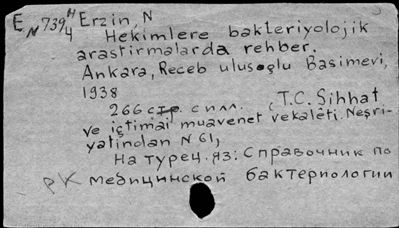 EN 739 H/4 Erzin, N
Hekimlere bakteriyolojik
araştirmalarda rehber.
Ankara, Receb ulusoğlu Basimevi,
1938
266 стр. с илл. (T.C. Sihhat
ve içtimai muavenet vekaleti. Neşri-
yatindan N 61)
На турец. яз: Справочник по
РК медицинской бактериологии